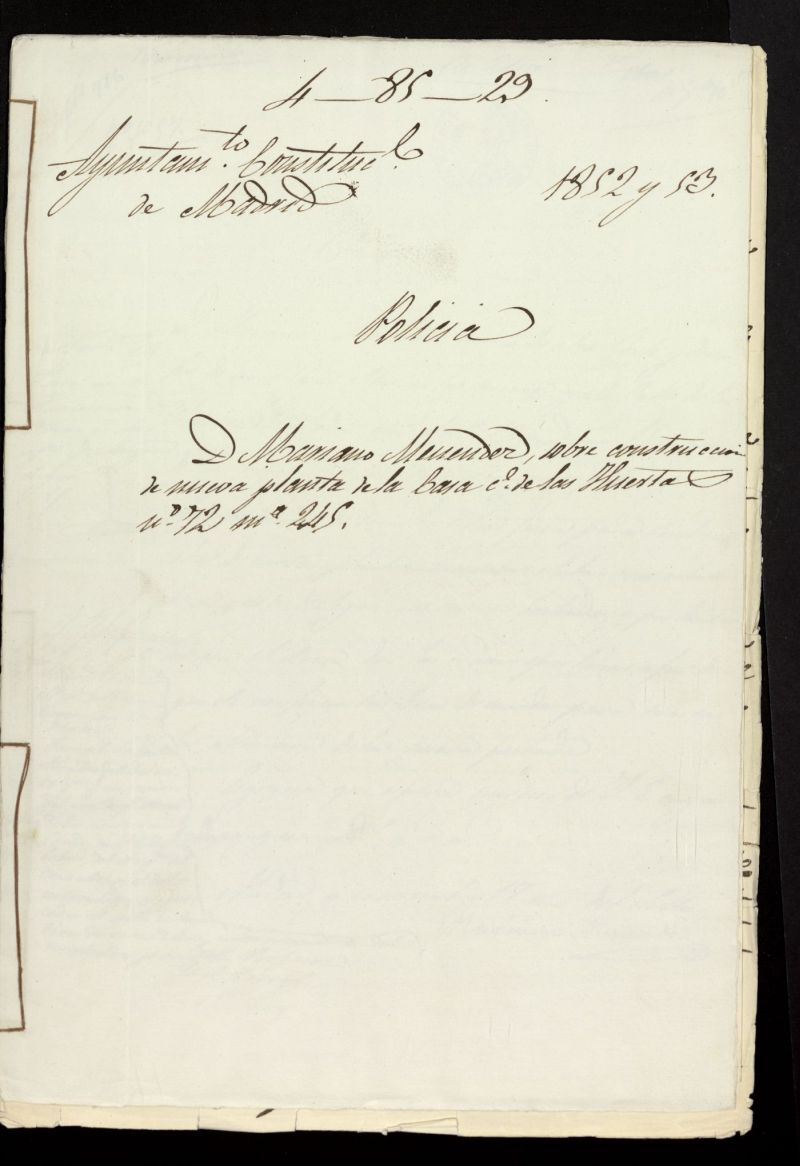 4—85—29.
Ayuntam.to Constitucl.
de Madrid
1852 y 53.
Policia
D Mariano Menendez, sobre construccion
de nueva planta de la Casa c.e de las Huertas
n.o 72 m.a 245.